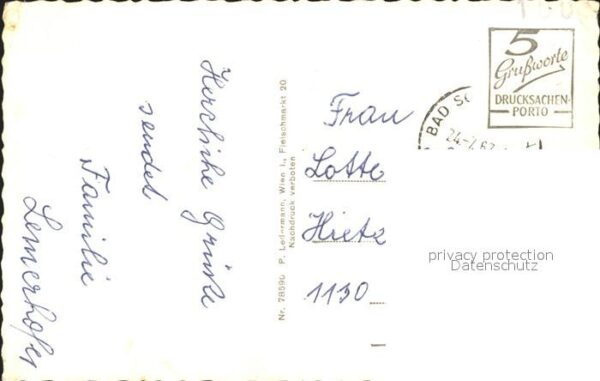 Herzliche Grüße
sendet
Familie
Lemerhofer
Nr. 78590 P. Ledermann, Wien I., Fleischmarkt 20
Nachdruck verboten
5
Grußworte
DRUCKSACHEN-
PORTO
BAD
24.-7.67
Frau
Lotte
Hietz
1130
privacy protection
Datenschutz